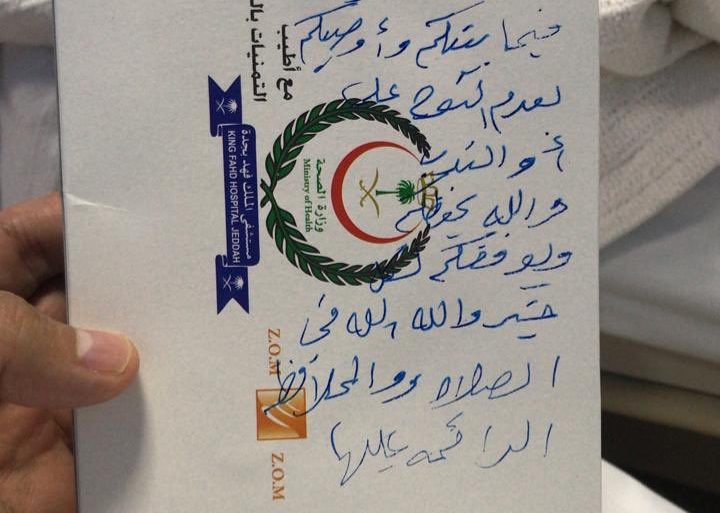 فيما بينكم وأوصيكم
بعدم النوح علي
أو
والله يحفظكم
ويوفقكم لكل
خير والله الله في
الصلاة والمحافظة
الدائمة عليها
مع أطيب
التمنيات بال
وزارة الصحة
Ministry of Health
مستشفى الملك فهد بجدة
KING FAHD HOSPITAL JEDDAH
Z.O.M
Z.O.M